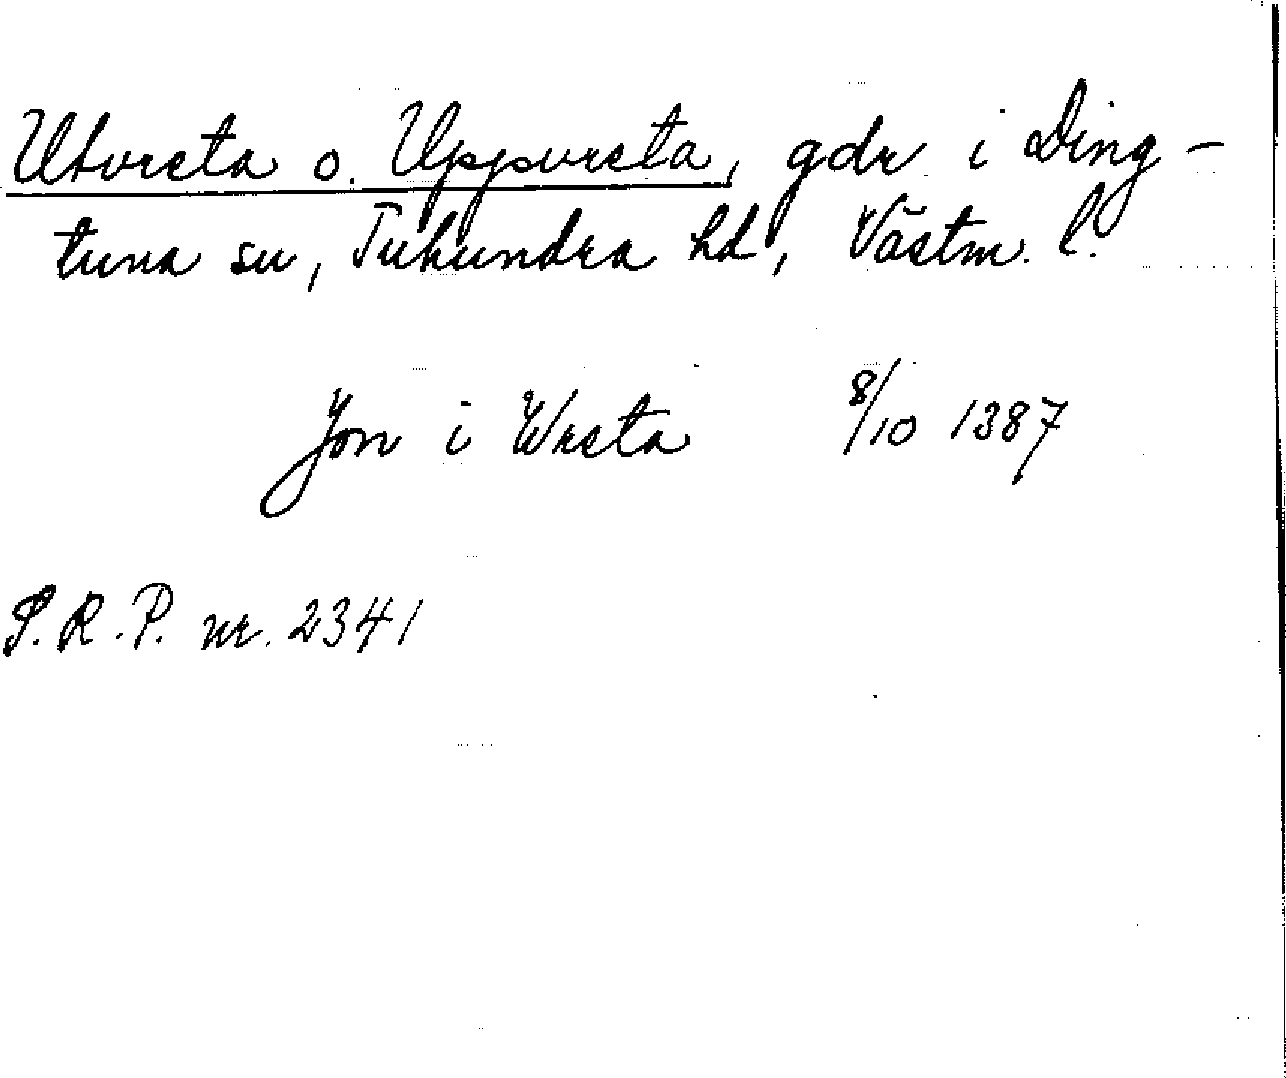 Utvreta o. Uppvreta, gdr i Ding-
tuna sn, Tuhundra hd, Västm. l.
Jon i Wreta 8/10 1387
S.R.P. nr. 2341